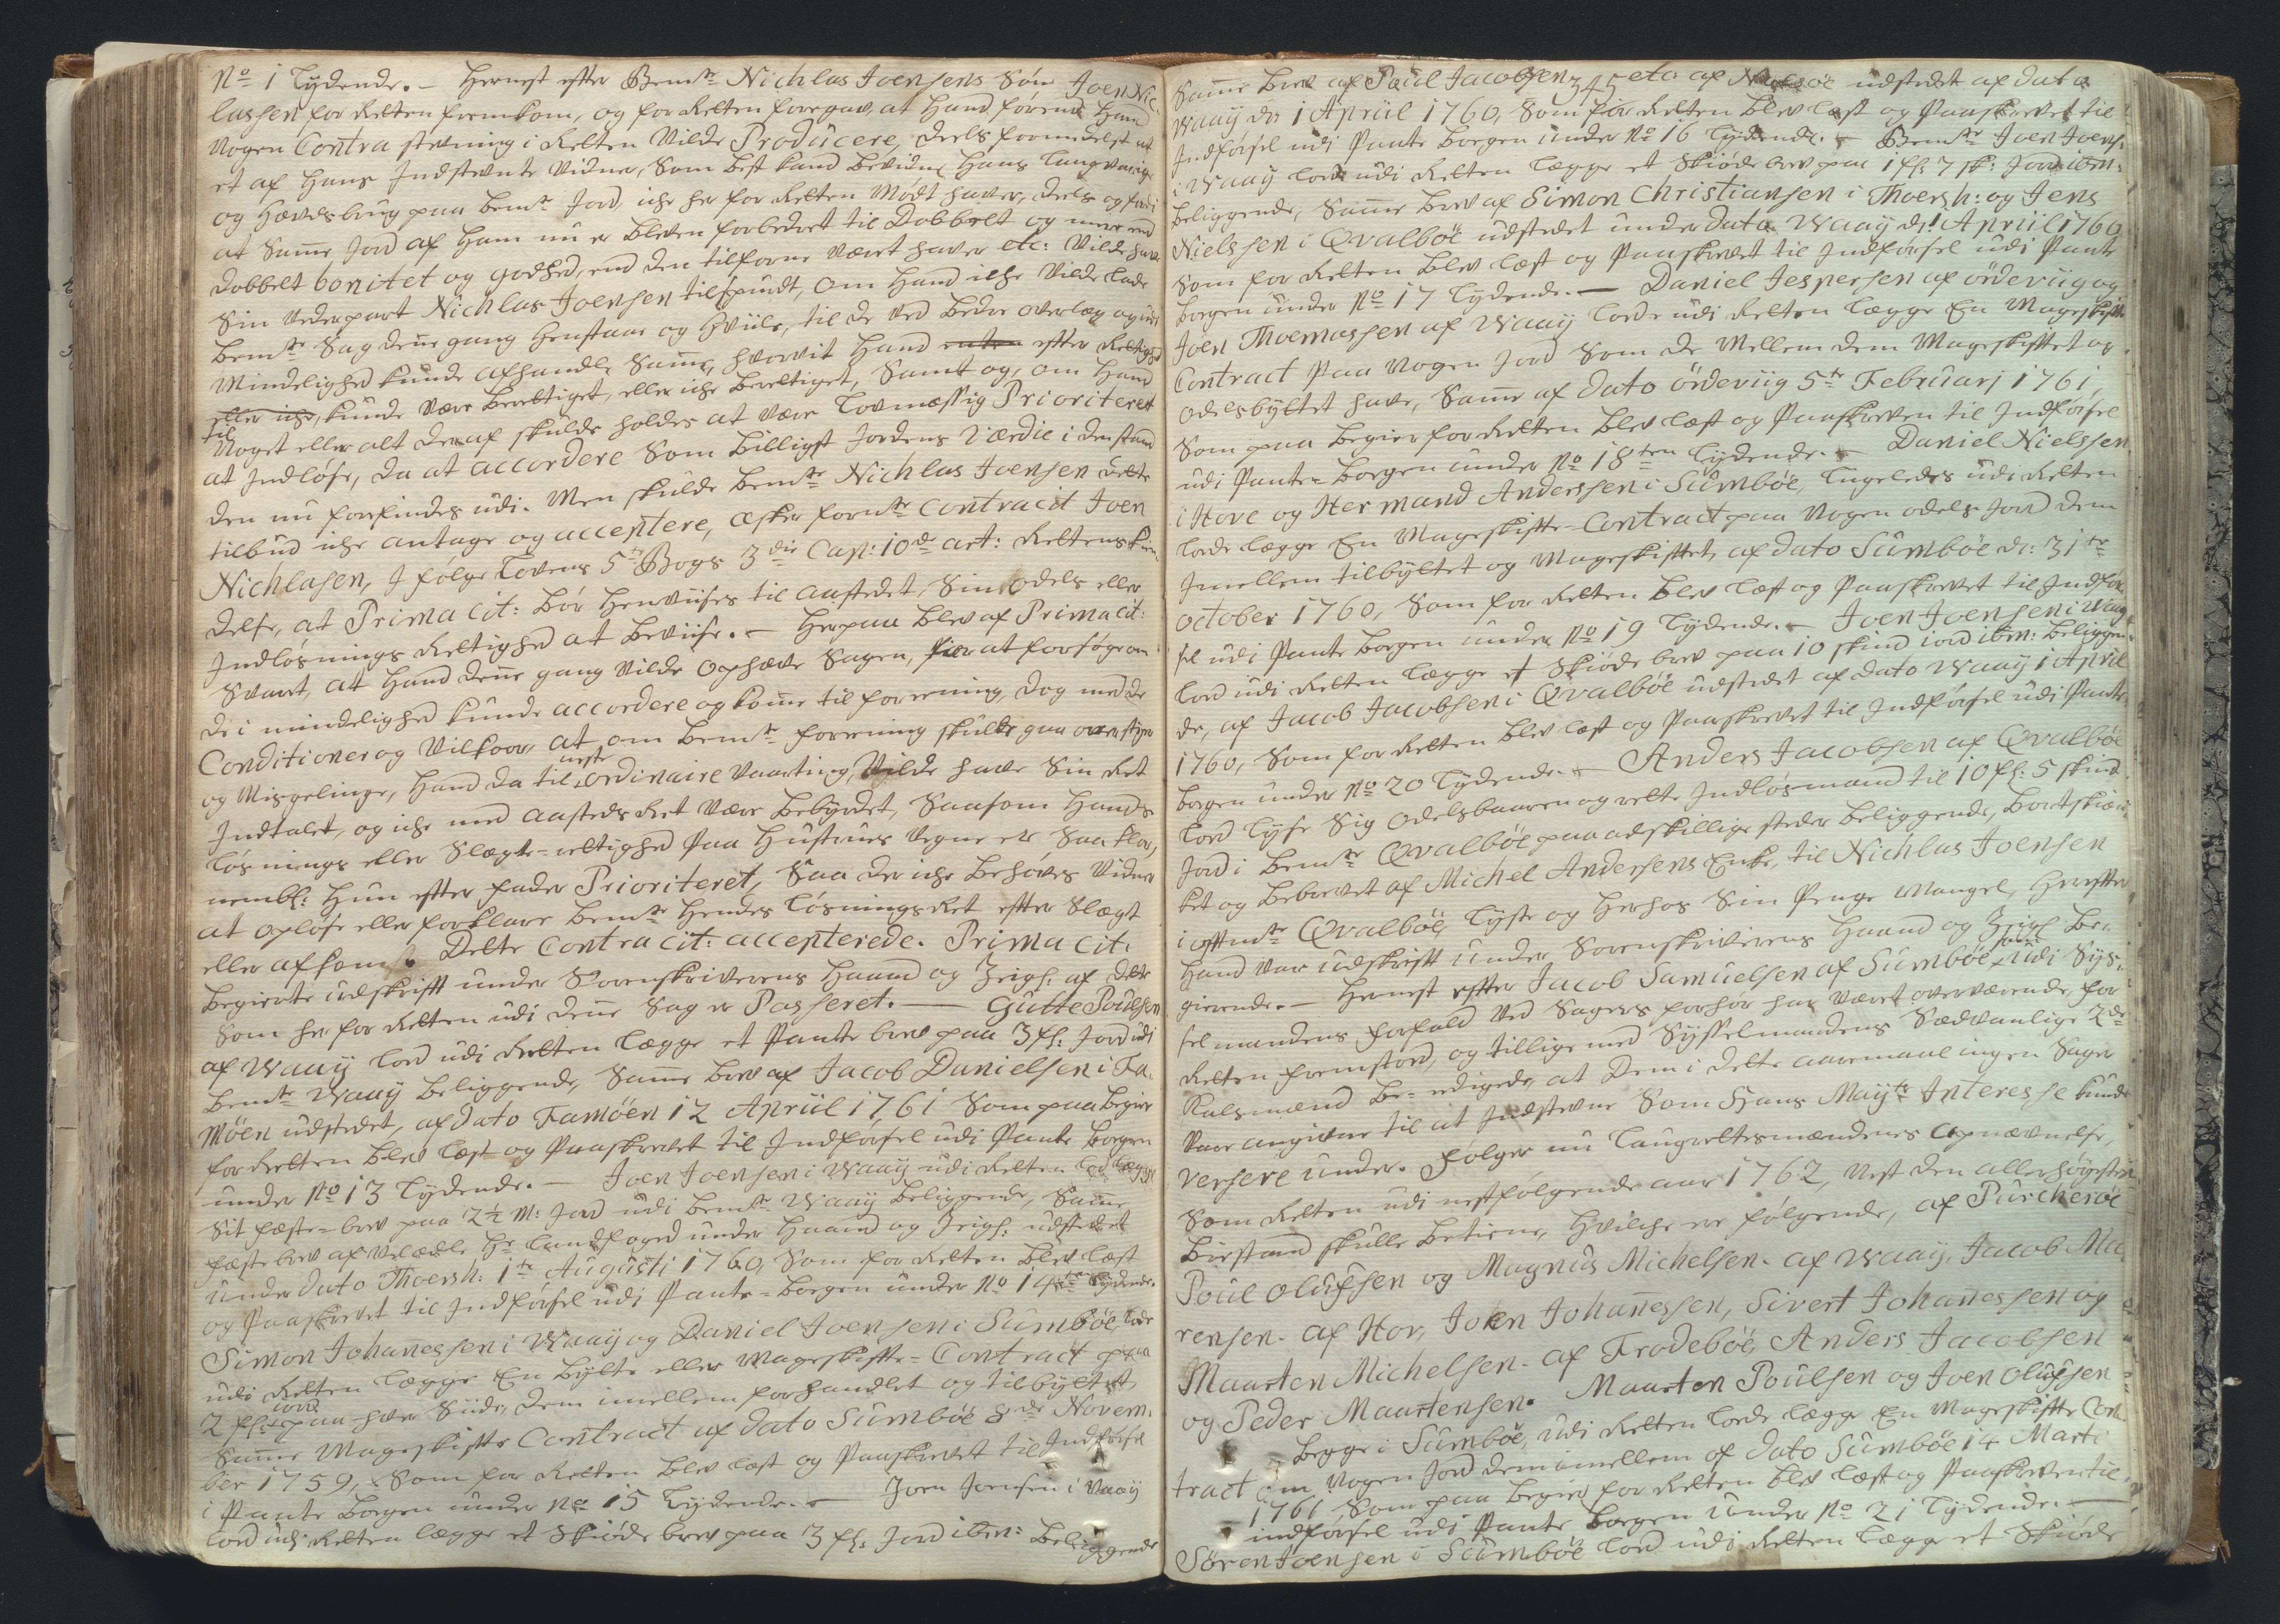 No 1 Lydende. - Hernest efter Bemte Nichlas Joensens Søn Joen Nic-
lassen for Retten fremkom, og for Retten foregav, at Hand førend Hand
Nogen Contra stevning i Retten Vilde Producere, deels formedelst at
et af Hans Indstevnte Vidner, Som best kand bevidne Hans langvarige
og Hævdsbrug paa bemte Jord, iche her for Retten Mødt haver, deels og fordi
at Samme Jord af Ham nu er bleven forbedret til Dobbelt og meer end
dobbelt bonitet og godhed, end den tilforne været haver etc: Vilde have
Sin Vederpart Nichlas Joensen tilspurdt, om Hand iche Vilde lade
bemte Sag denne gang Henstaae og Hviile, til de ved bedre overlæg og udi
Mindelighed kunde afhandle Samme, hvorvit Hand enten efter Rettighed
eller iche, kunde være berettiget, eller iche berettiget, Samt og, om Hand
til
Noget eller alt deraf skulde holdes at være Lovmæssig Prioriteret
at Indløse, da at accordere Som billigst Jordens Værdie i den stand
den nu forfindes udi. Men skulde bemte Nichlas Joensen dette
tilbud iche antage og acceptere, æsker fornte Contracit Joen
Nichlasen, I følge Lovens 5te Bogs 3die Cap: 10de art: Rettens kien-
delse, at Prima cit: bør Henviises til aastedet, Sin odels eller
Indløsnings Rettighed at beviise. - Herpaa blev af Prima cit:
Svaret, at Hand denne gang Vilde ophæve Sagen, for at forsøge om
de i mindelighed kunde accordere og komme til forening, dog med de
Conditioner og Vilkoor, at om bemte forening skulde gaa overstyr
og Misgelinge, Hand da til neste ordinaire Vaarting, Vilde have Sin Ret
Indtalet, og iche med Aasteds Ret være bebyrdet, Saasom Hands
løsnings eller Slægts-rettighed paa Hustrues Vegne er Saa klar,
nembl: Hun efter fader Prioriteret, Saa der iche behøves Vidner
at opløse eller forklare bemte Hendes løsnings Ret efter Slægt
eller afkomst. Dette Contra cit: accepterede. Prima cit.
begierte udskrift under Sorenskriverens Haand og Zeigl: af dette
Som her for Retten udi denne Sag er Passeret. - Gutte Poulsen
af Waaij lod udi Retten lægge et Pante brev paa 3 fl: Jord udi
bemte Waaij beliggende, Samme brev af Jacob Danielsen i Fa-
möen udstedet, af dato Famöen 12 Apriil 1761 Som paa begier
for Retten blev læst og Paaskrevet til Indførsel udi Pante bogen
under No 13 Lydende. - Joen Joensen i Waaij udi Retten lod lægge
Sit fæste-brev paa 2½ M: Jord udi bemte Waaij beliggende, Samme
fæste brev af Velædle Hr Landfoged under Haand og Zeigl: udstedet
under dato Thoersh: 1te Augusti 1760, Som for Retten blev læst
og Paaskrevet til Indførsel udi Pante-bogen under No 14 Lydende.
Simon Johannessen i Waaij og Daniel Joensen i Sumböe, lode
udi Retten lægge En bytte eller Mageskifte-Contract paa
2 fl: Jord paa hver Siide, dem imellem forhandlet og tilbyttet
Samme Mageskifte Contract af dato Sumböe 8de Novem-
ber 1759, Som for Retten blev læst og Paaskrevet til Indførsel
i Pante bogen under No 15 Lydende. - Joen Joensen i Vaaij
lod udi Retten lægge et Skiöde brev paa 3 fl: Jord ibm: beliggende
345
Samme brev af Poul Jacobsen etc: af Nolsöe udstedet af dato
Waaij d: 1 Apriil 1760, Som for Retten blev læst og Paaskrevet til
Indførsel udi Pante bogen under No 16 Lydende. - Bemte Joen Joens:
i Waaij lod udi Retten lægge et Skiöde brev paa 1 fl: 7 sk: Jord ibm:
beliggende, Samme brev af Simon Christiansen i Thoersh: og Jens
Nielssen i Qvalböe udstedet under dato Waaij d: 1 Apriil 1760
Som for Retten blev læst og Paaskrevet til Indførsel udi Pante
bogen under No 17 Lydende. - Daniel Jespersen af ördeviig og
Joen Thoemassen af Waaij lode udi Retten lægge En Mageskifte
Contract paa Nogen Jord Som de Mellem dem Mageskiftet og
odelsbyttet have, Samme af dato ördeviig 5te Februarj 1761,
Som paa begier for Retten blev læst og Paaskreven til Indførsel
udi Pante-bogen under No 18ten Lydende. - Daniel Nielssen
i Hove og Hermand Anderssen i Sumböe, ligeledes udi Retten
lode lægge En Mageskifte-Contract paa Nogen odels Jord dem
Imellem tilbyttet og Mageskiftet, af dato Sumböe d: 31te
october 1760, Som for Retten blev læst og Paaskrevet til Indfør-
sel udi Pante bogen under No 19 Lydende. - Joen Joensen i Waaij
lod udi Retten lægge et Skiöde brev paa 10 skind iord ibm: beliggen-
de, af Jacob Jacobsen i Qvalböe udstedet af dato Waaij 1 April
1760, Som for Retten blev læst og Paaskrevet til Indførsel udi Pante
bogen under No 20 Lydende. - Anders Jacobsen af Qvalböe
lod Lyse Sig odelsbaaren og rette Indløsmand til 10 fl: 5 skind
Jord i bemte Qvalböe paa adskillige steder beliggende, bortskiøn-
ket og bebrevet af Michel Andersens Enke, til Nichlas Joensen
i oftmte Qvalböe, Lyste og Herhos Sin Penge Mangel, Hvorefter
Hand var udskrift under Sorenskriverens Haand og Zeigl be-
gierende. - Hernest efter Jacob Samuelsen af Sumböe, udi Sys-
selmandens forfald ved Sagers forhør har været overværende, for
Retten fremstod, og tillige med Sysselmandens Sædvanlige 2de
Ralsmænd be-edigede, at dem i dette aaremaal ingen Sager
vare angivne til at Indstevne Som Hans Mayts Interesse kunde
versere under. Følger nu Laugrettesmændenes opnævnelse,
Som Retten udi nestfølgende aar 1762, nest den allerhøyestes
biestand skulle betiene, hvilche ere følgende, af Purcheröe
Poul Olufsen og Magnus Michelsen. af Waaij, Jacob Ma-
rensen. af Hov, Joen Johannessen, Sivert Johannessen og
Maarten Michelsen. af Frodeböe, Anders Jacobsen
og Peder Maartensen. Maarten Poulsen og Joen Olufsen
begge i Sumböe, udi Retten lode lægge En Mageskifte Con-
tract om Nogen Jord dem imellem af dato Sumböe 14 Marti
1761 Som paa begier for Retten blev læst og Paaskreven til
indførsel udi Pante bogen under No 21 Lydende. -
Sören Joensen i Sumböe lod udi Retten lægge et Skiöde